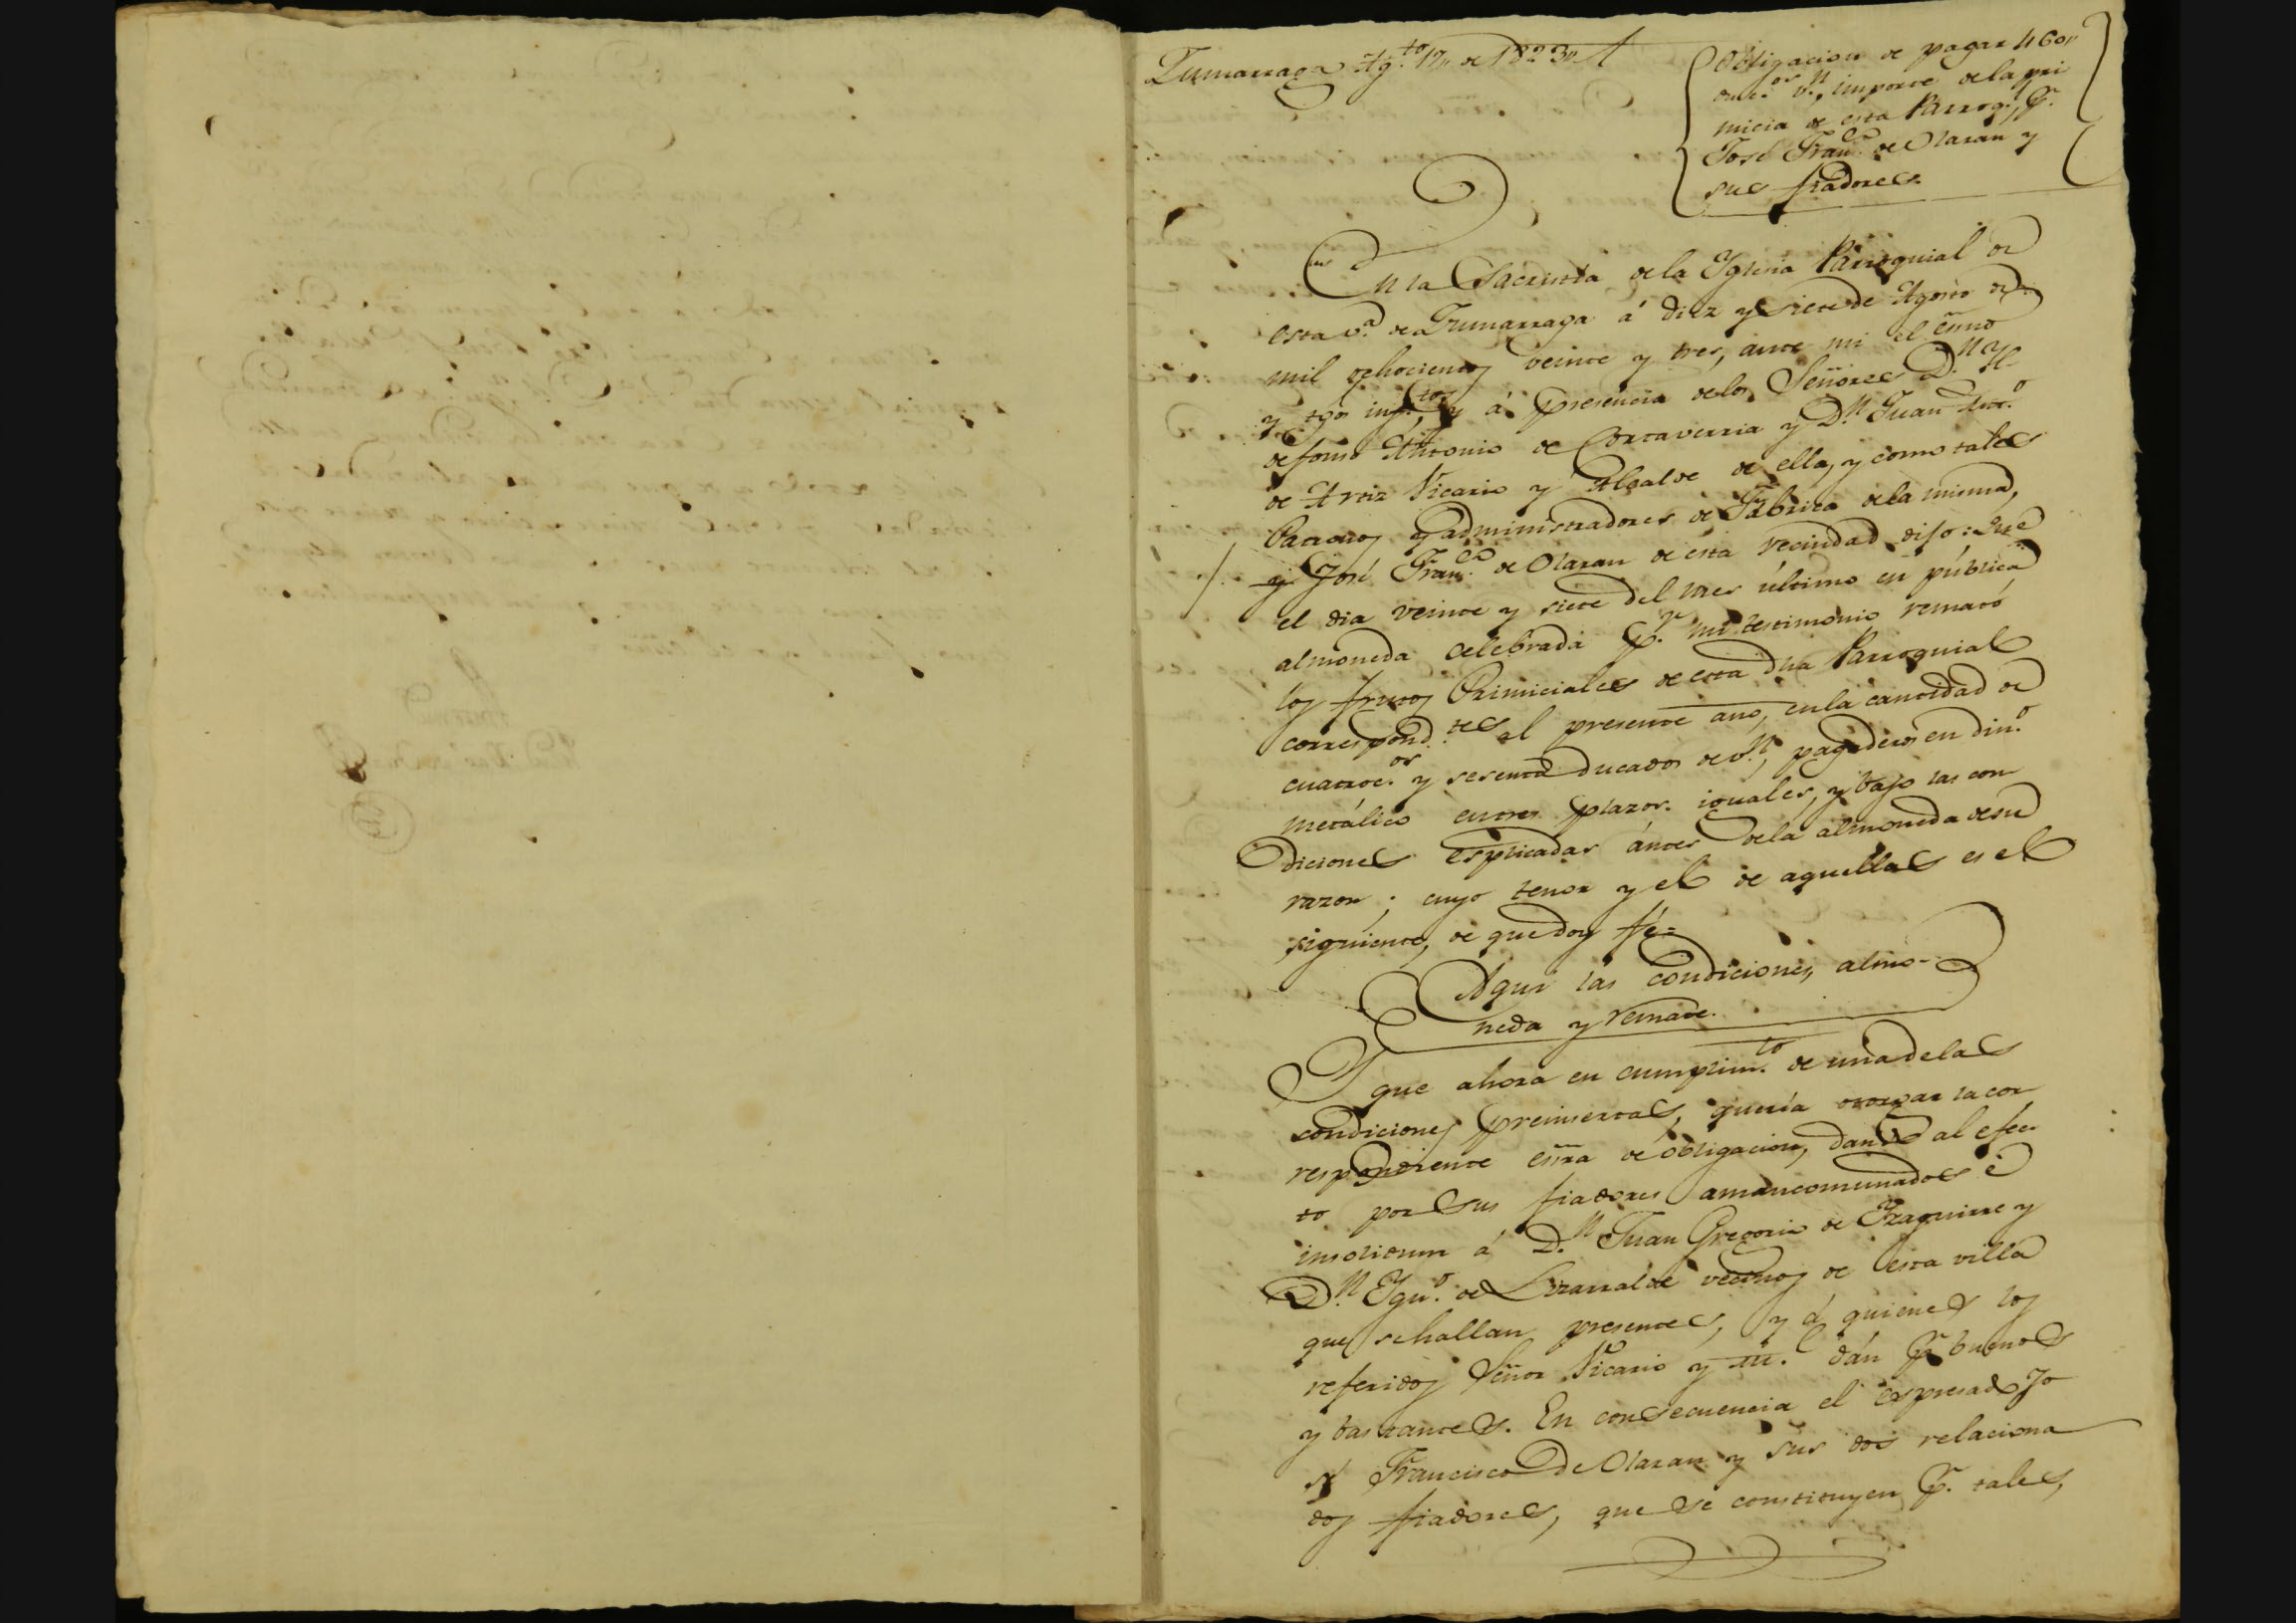 Zumarraga Ag.to 17,, de 1823,,
Obligacion de pagar 460,,
duc.os v.n, importe de la pri
micia de esta Parroq.l, p.r
José Fran.co de Olaran y
sus fiadores.
En la Sacristia de la Iglesia Parroquial de
esta v.a de Zumarraga á diez y siete de Agosto de
mil ochocientos veinte y tres, ante mi el esño
y tgos inf.tos, y á presencia de los Señores D.n Yl-
defonso Antonio de Cortaverria y D.n Juan Ant.o
de Artiz Vicario y Alcalde de ella, y como tales
Patronos y administradores de Fabrica de la misma,
y José Fran.co de Olaran de esta vecindad dijo: Que
el dia veinte y siete del mes último en pública
almoneda celebrada p.r mi testimonio remató
los frutos Primiciales de esta dha Parroquial
correspond.tes al presente año, en la cantidad de
cuatroc.os y sesenta ducados de v.n, pagaderos en din.o
metálico en tres plazos iguales, y bajo las con
diciones esplicadas ántes de la almoneda de su
razon; cuyo tenor y el de aquellas es el
siguiente, de que doy fé=
Aqui las condiciones, almo-
neda y remate.
Y que ahora en cumplim.to de una de las
condiciones preinsertas, queria otorgar la cor
respondiente esñra de obligacion, dando al efec
to por sus fiadores amancomunados é
insolidum á D.n Juan Gregorio de Yzaguirre y
D.n Ygn.o de Lizarralde vecinos de esta villa
que se hallan presentes, y á quienes los
referidos Señor Vicario y dán p.r buenos
y bastantes. En consecuencia el espresado Jo
sé Francisco de Olaran y sus dos relaciona
dos fiadores, que se constituyen p.r tales,